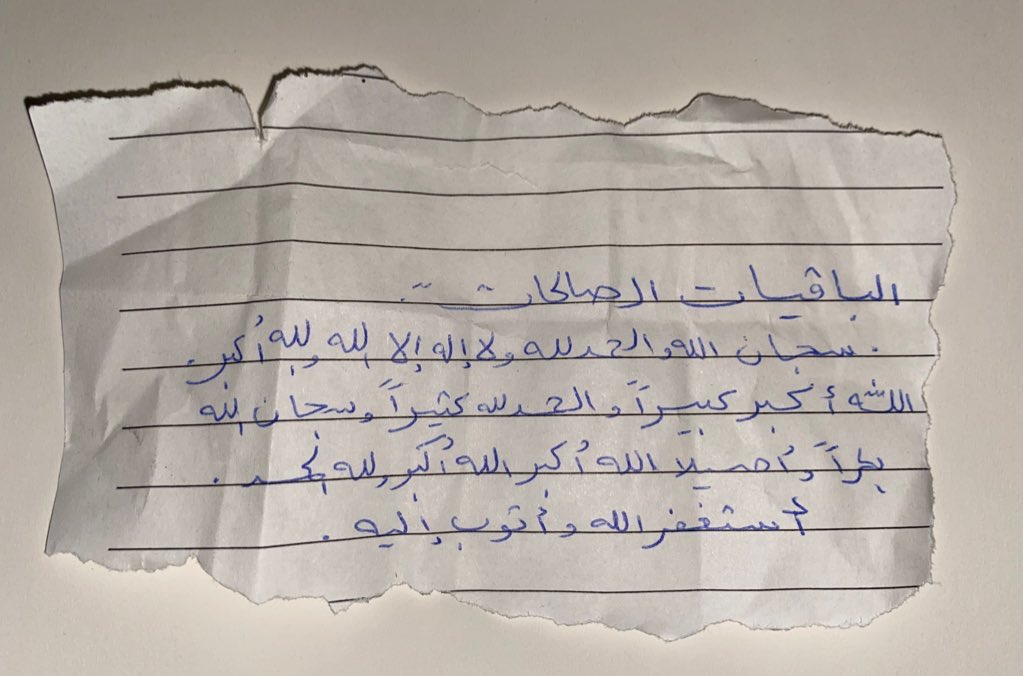 الباقيات الصالحات :-
. سبحان الله والحمدلله ولا إله إلا الله ولله أكبر .
الله أكبر كبيراً والحمدلله كثيراً وسبحان الله
بكراً وأصيلا الله أكبر الله أكبر ولله الحمد .
أستغفر الله وأتوب إليه .